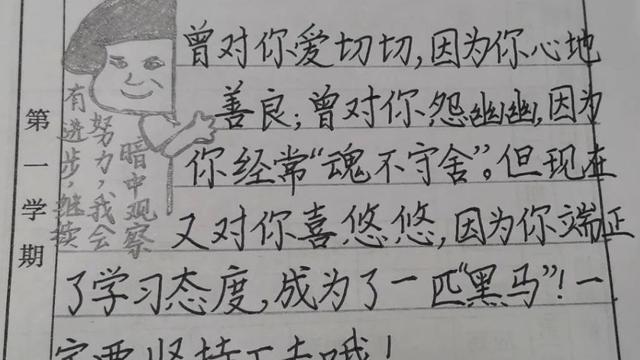 曾对你爱切切,因为你心地
善良;曾对你怨幽幽,因为
你经常“魂不守舍”。但现在
又对你喜悠悠,因为你端正
了学习态度,成为了一匹“黑马”!一
定要坚持下去哦!
第一学期
有进步,继续
努力,我会
暗中观察